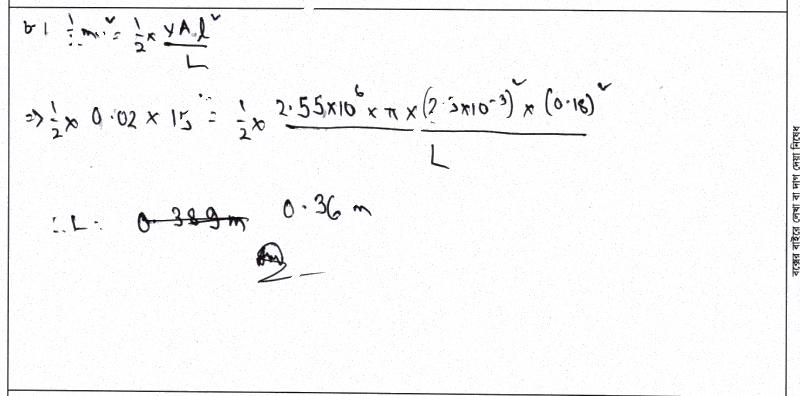 ৮। ½mv² = ½ × YAl²/L
⇒ ½ × 0.02 × 15² = ½ × 2.55×10⁶ × π × (2.5×10⁻³)² × (0.18)² / L
∴ L = 0.389m 0.36 m
বক্সের বাইরে লেখা বা দাগ দেয়া নিষেধ